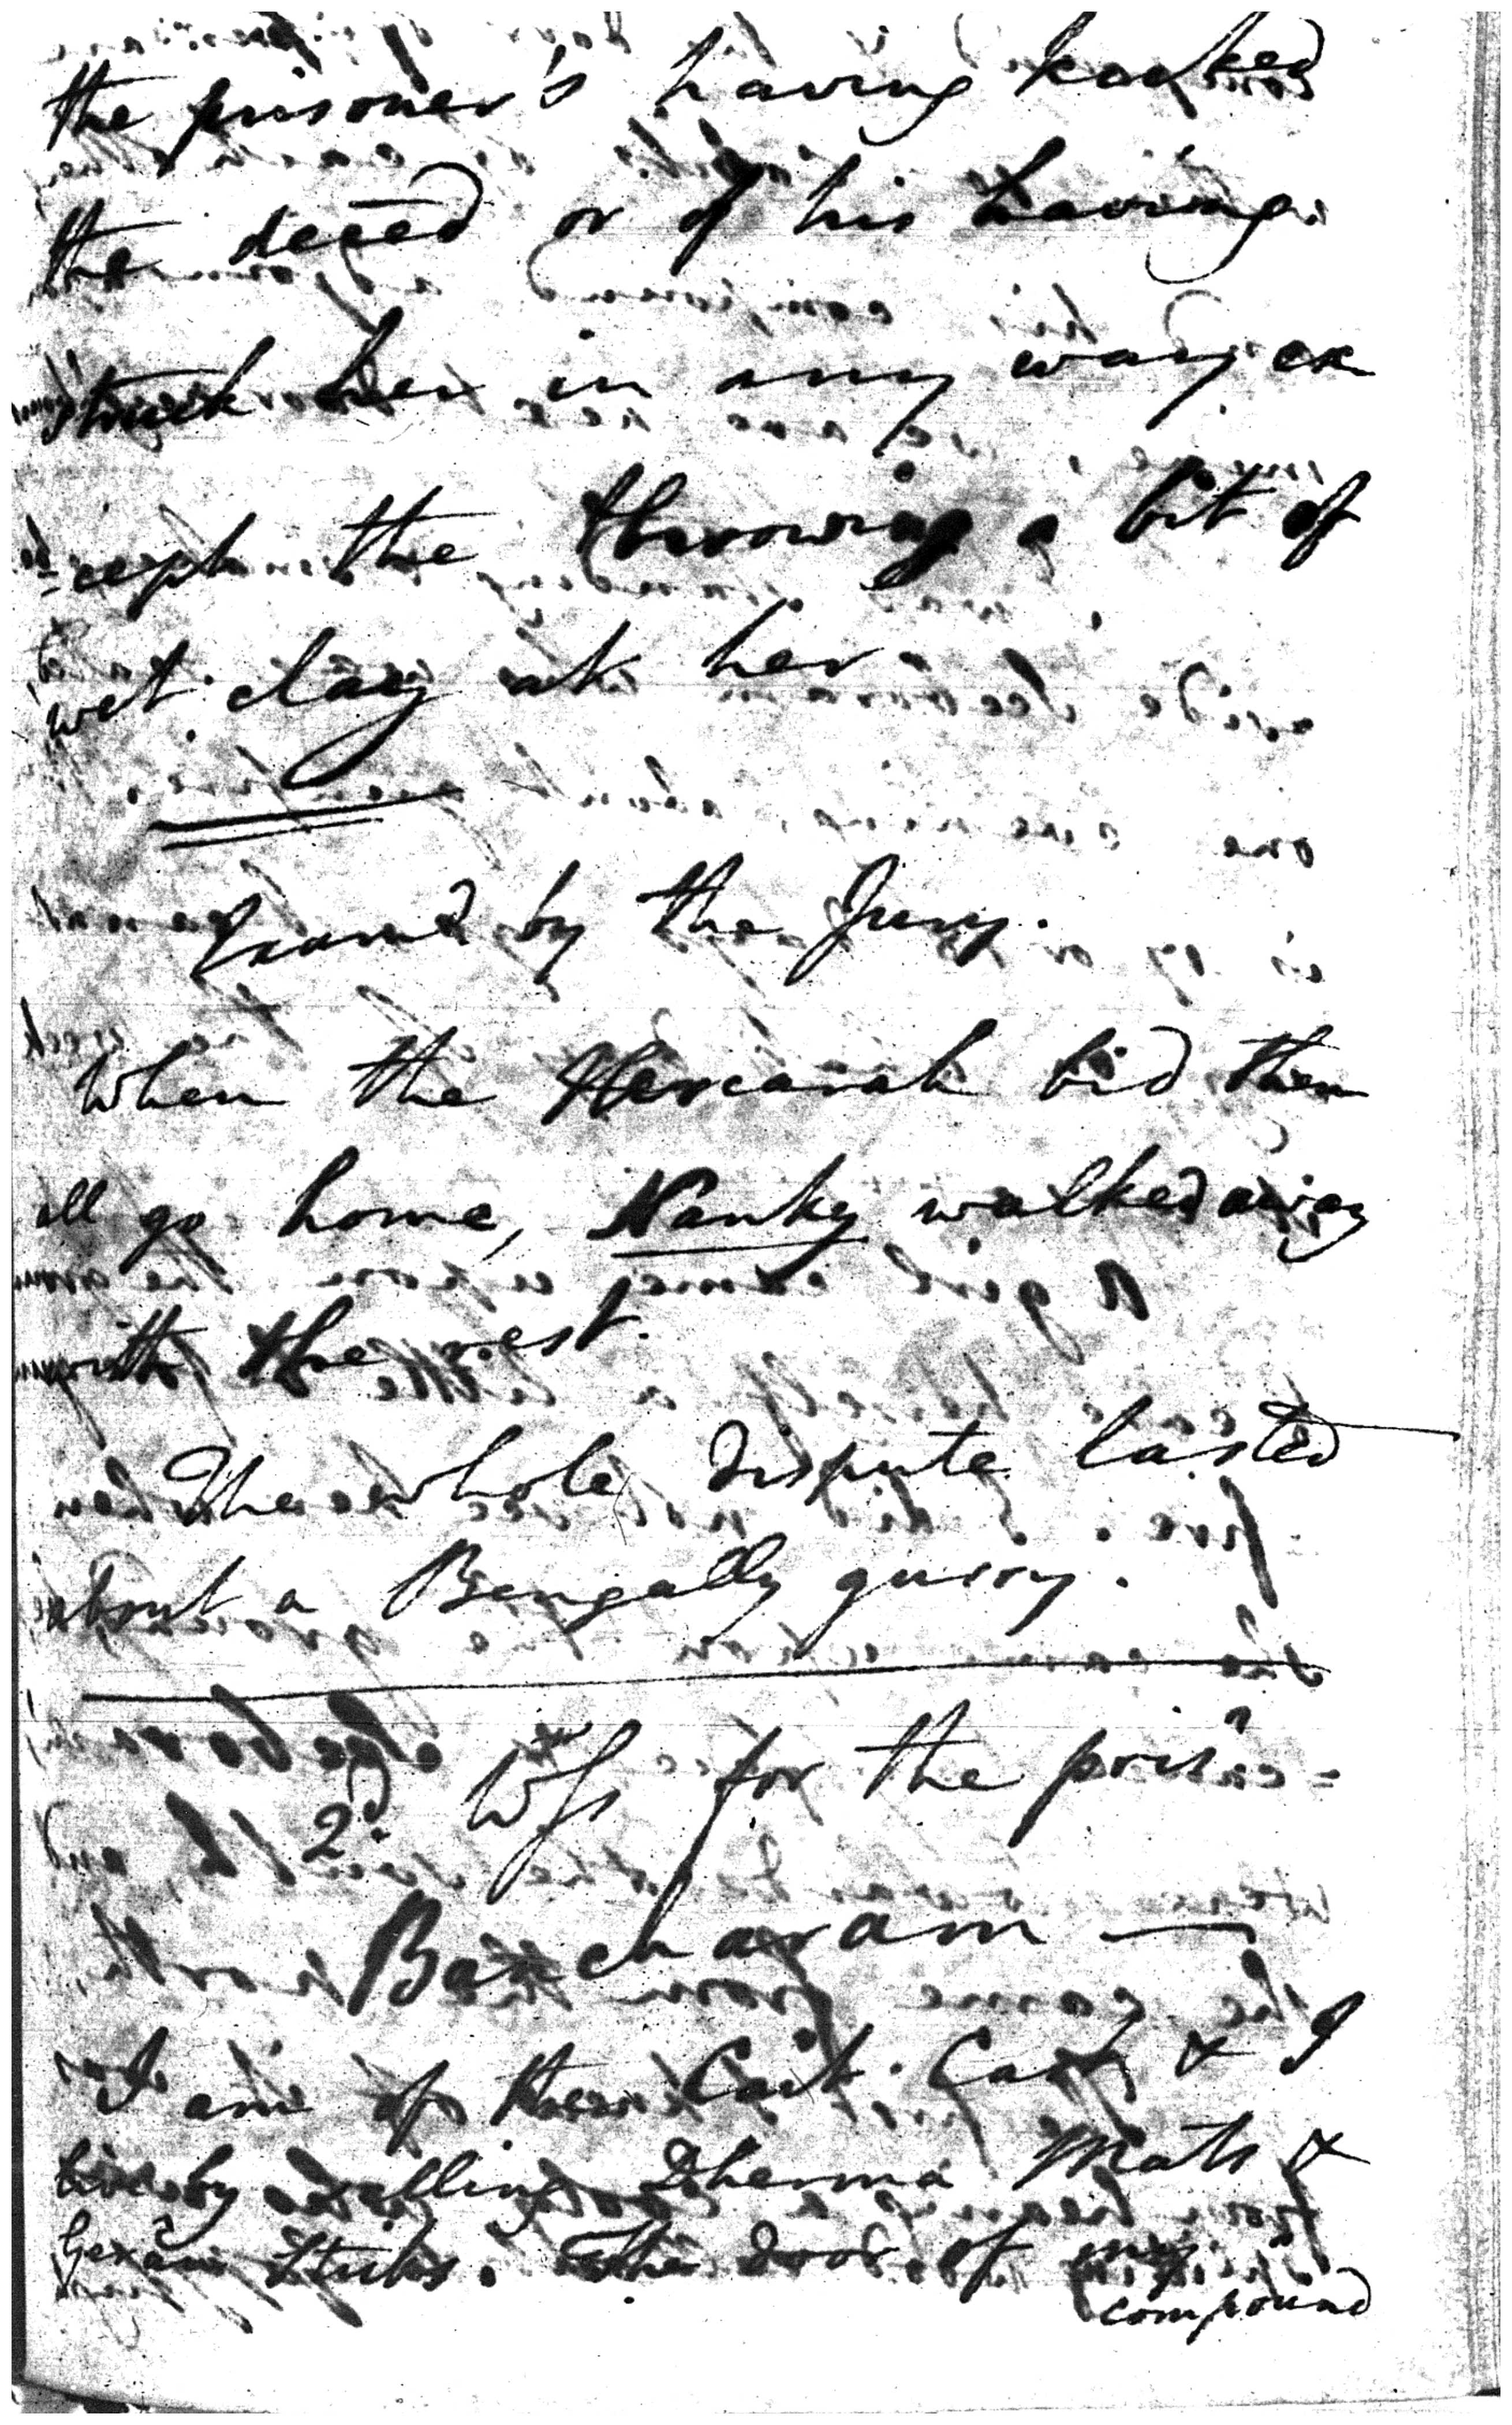 the prisoner's having kicked
the deced or of his having
struck her in any way ex
=cept the throwing a bit of
wet clay at her
Examd by the Jury.
When the Hercarah bid them
all go home, Nanky walked away
with the rest.
The whole dispute lasted
about a Bengally gurry.
2d. Wss for the prisr
Bancharam —
I am of the Cast &  I
live by selling Dherma Mats &
Sticks. The door of my
compound